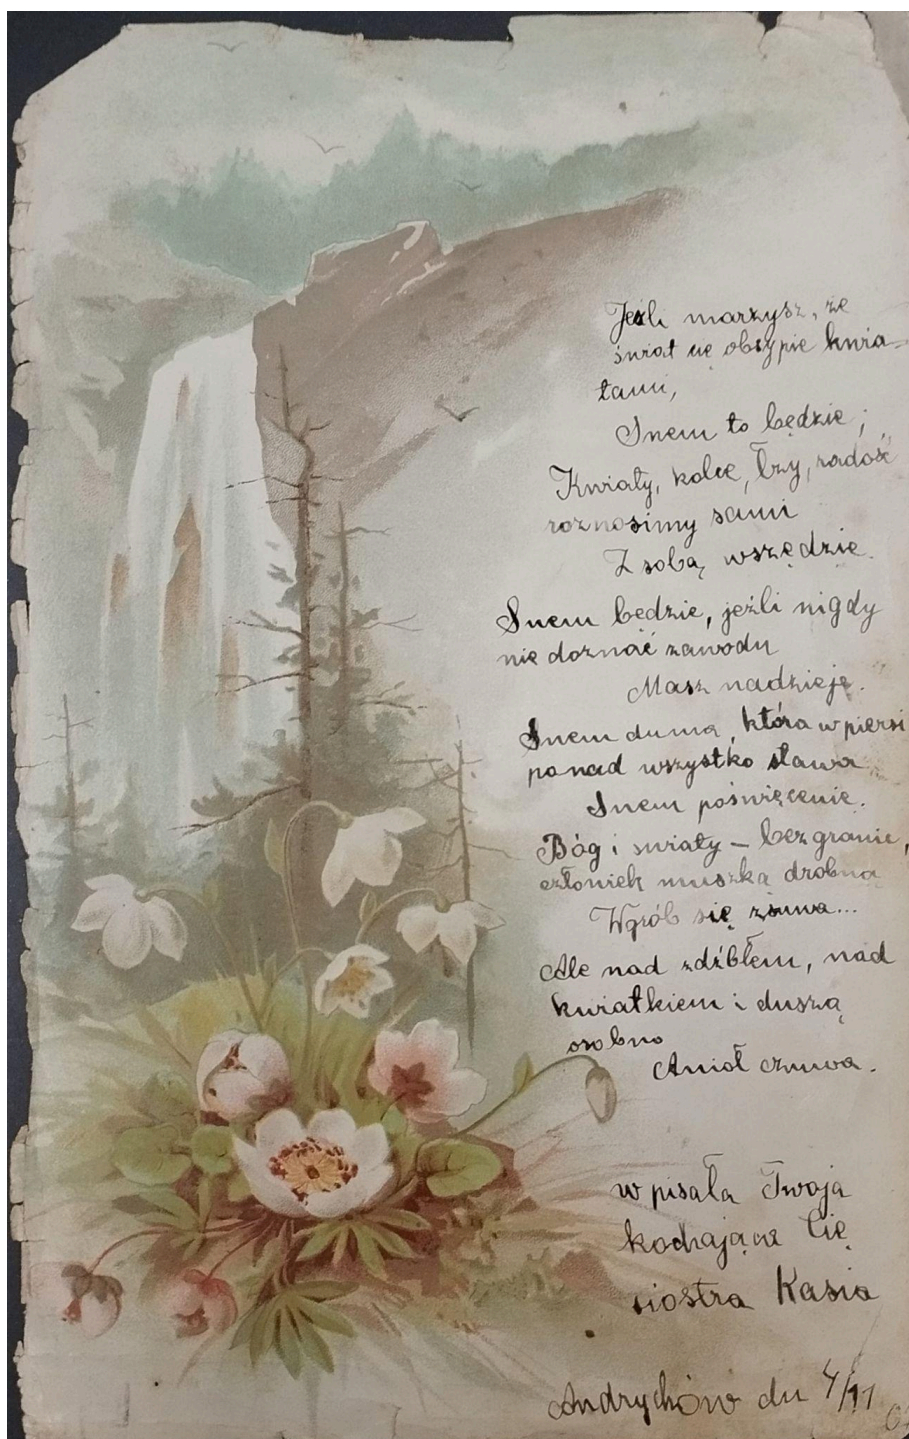 Jeśli marzysz, że
świat się obsypie kwia-
tami,
Snem to będzie;
Kwiaty, kolce, łzy, radość
roznosimy sami
Z sobą wszędzie.
Snem będzie, jeźli nigdy
nie doznać zawodu
Masz nadzieję.
Snem duma, która w piersi
ponad wszystko sława
Snem poświęcenie.
Bóg i światy – bez granic,
człowiek muszka drobna
W grób się zsuwa...
Ale nad zdźbłem, nad
kwiatkiem i duszą
osobno
Anioł czuwa.
wpisała Twoja
kochająca Cię
siostra Kasia
Andrychów dn 4/11